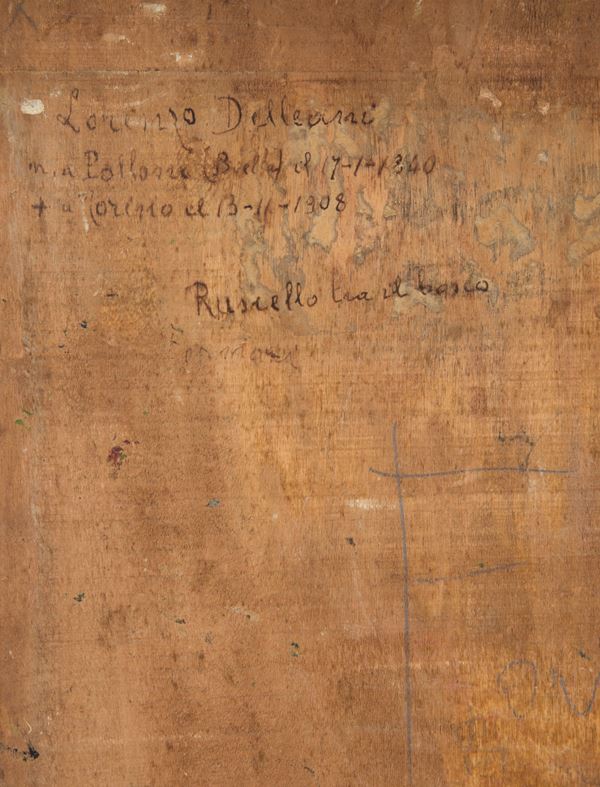 Lorenzo Delleani
n. a Pollone (Biella) il 17-1-1840
+ a Torino il 13-11-1908
Ruscello tra il bosco